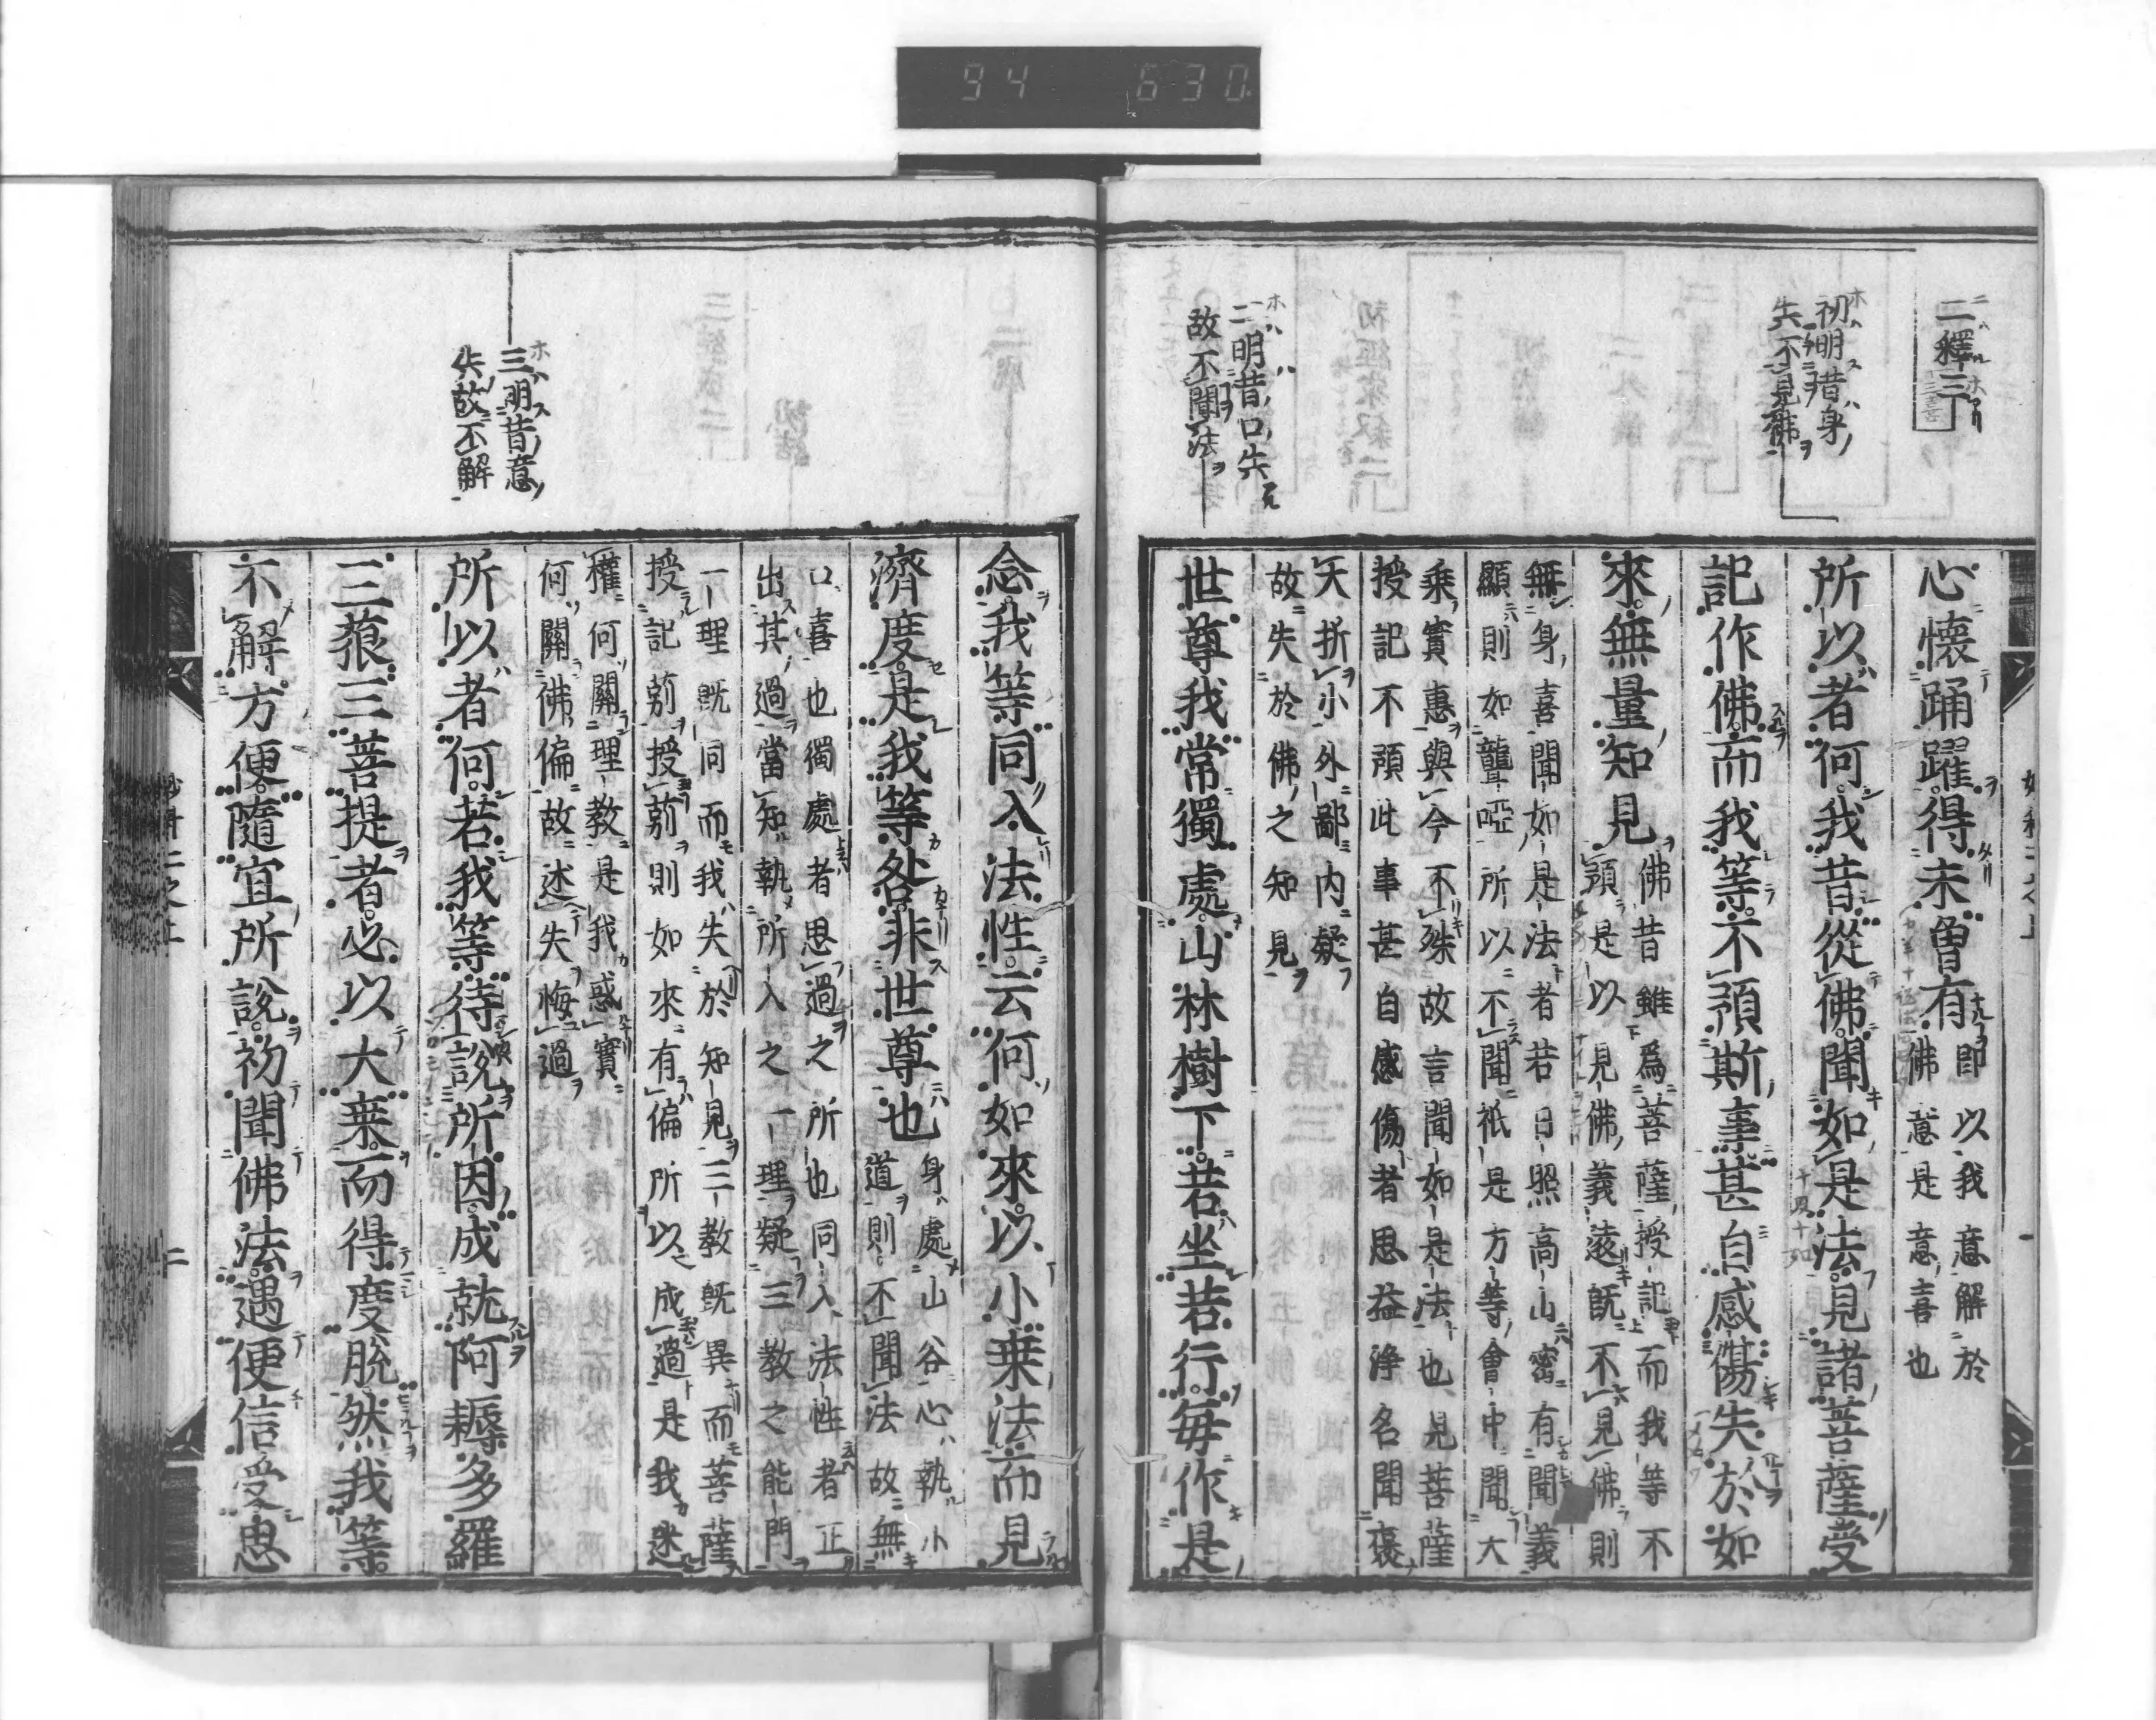 94 630
二釋三
初明昔身
失不見佛
二明昔口失
故不聞法
心懷踊躍得未曾有
即以我意解於
佛意是意喜也
所以者何我昔從佛聞如是法見諸菩薩受
記作佛而我等不預斯事甚自感傷失於如
來無量知見
佛昔雖爲菩薩授記而我等不
預是以見佛義遠既不見佛則
無身喜聞如是法者若日照高山密有聞義
顯則如聾啞所以不聞祇是方等會中聞大
乘實惠與今不殊故言聞如是法也見菩薩
授記不預此事甚自感傷者思益淨名聞襃
天折小外鄙內疑
故失於佛之知見
世尊我常獨處山林樹下若坐若行每作是
三明昔意
失故不解
念我等同入法性云何如來以小乗法而見
濟度是我等咎非世尊也
身處山谷心執小
道則不聞法故無
口喜也獨處者思過之所也同入法性者正
出其過當知執所入之一理疑三教之能門
一理既同而我失於知見三教既異而菩薩
授記莂授莂則如來有偏所以成過是我迷
權何關理教是我惑實
何關佛偏故述失悔過
所以者何若我等待說所因成就阿耨多羅
三藐三菩提者必以大乗而得度脫然我等
不解方便隨宜所說初聞佛法遇便信受思
二